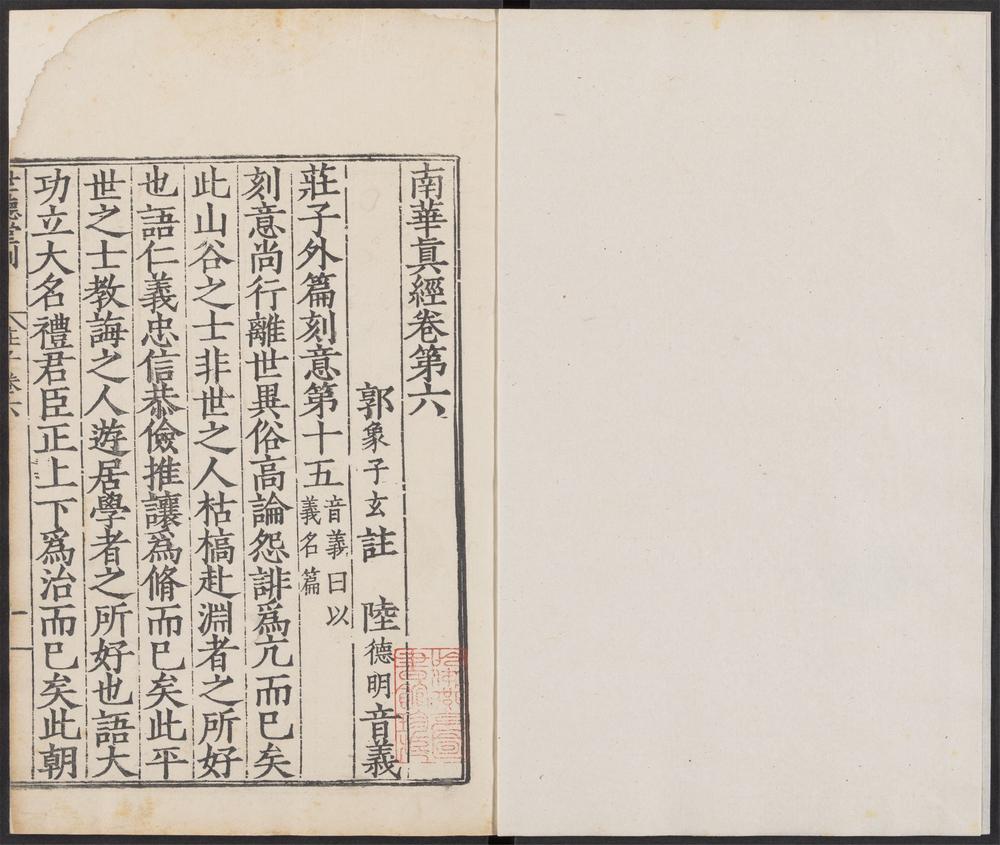 南華眞經卷第六
郭象子玄註　陸德明音義
莊子外篇刻意第十五 音義曰以
義名篇
刻意尚行離世異俗高論怨誹爲亢而巳矣
此山谷之士非世之人枯槁赴淵者之所好
也語仁義忠信恭儉推讓爲脩而巳矣此平
世之士教誨之人遊居學者之所好也語大
功立大名禮君臣正上下爲治而巳矣此朝